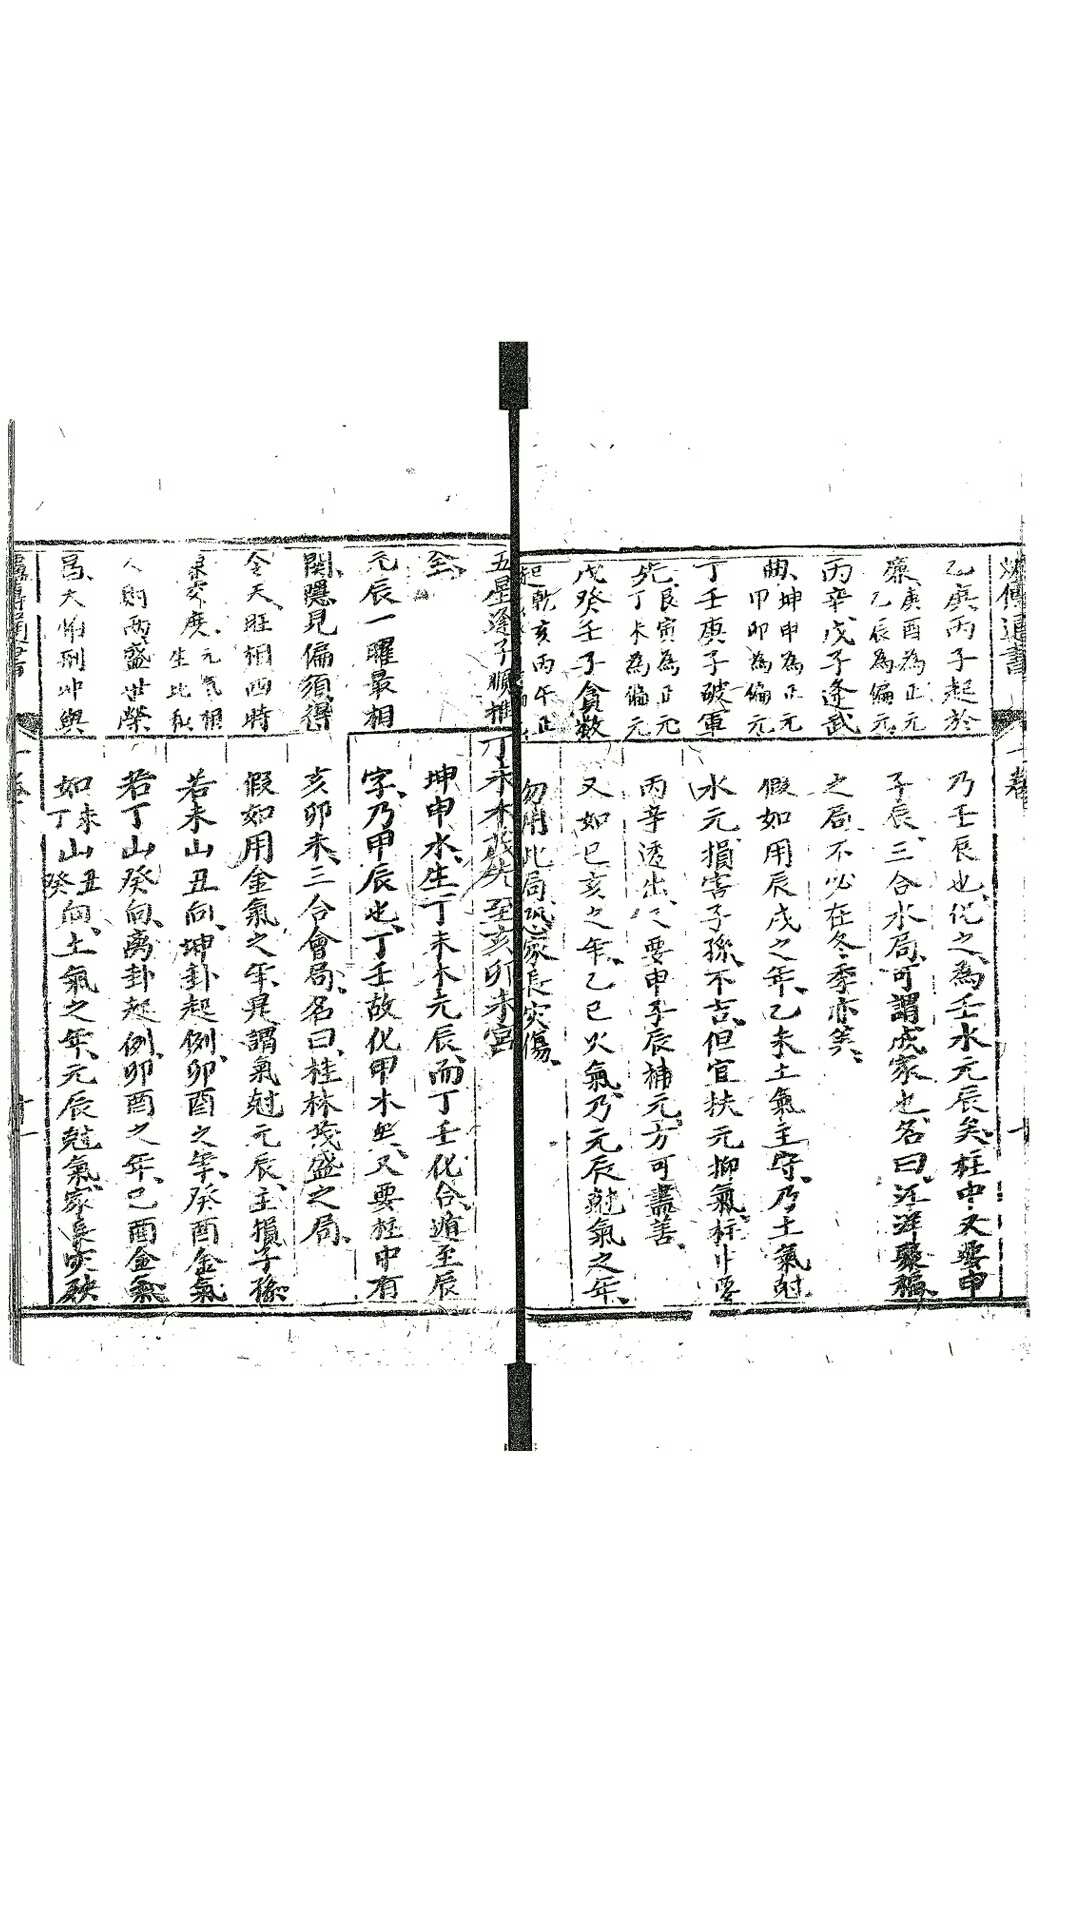 乙庚丙子起於
廉
庚酉為正元
乙辰為偏元
丙辛戊子逢武
曲
坤申為正元
甲卯為偏元
丁壬庚子破軍
先
艮寅為正元
丁未為偏元
戊癸壬子貪數
起
乾亥丙午正
乃壬辰也、化之為壬水元辰矣、柱中又要申
子辰、三合水局、可謂成家也、名曰、汪洋聚福、
之局、不必在冬季亦美、
假如用辰戌之年、乙未土氣主守、乃土氣尅
水元、損害子孫、不吉、但宜扶元抑氣、柱中要
丙辛透出、又要申子辰補元、方可盡善、
又如巳亥之年、乙巳火氣、乃元辰尅氣之年、
勿用此局、恐家長灾傷、
五星逢子順推
至、
元辰一曜最相
関、隱見偏須得
令天、旺相四時
交度、
元氣相
生比
則両盛世榮
昌、大怖刑冲與
丁未木
至亥卯未宮
坤申水、生丁未木元辰、而丁壬化合、遁至辰
字、乃甲辰也、丁壬故化甲木矣、又要柱中有
亥卯未、三合會局、名曰、桂林茂盛之局、
假如用金氣之年、是謂氣尅元辰、主損子孫、
若未山丑向、坤卦起例、卯酉之年、癸酉金氣
若丁山癸向、离卦起例、卯酉之年、己酉金氣
如
未
丁
山
丑
癸
向、土氣之年、元辰尅氣、家長灾殃